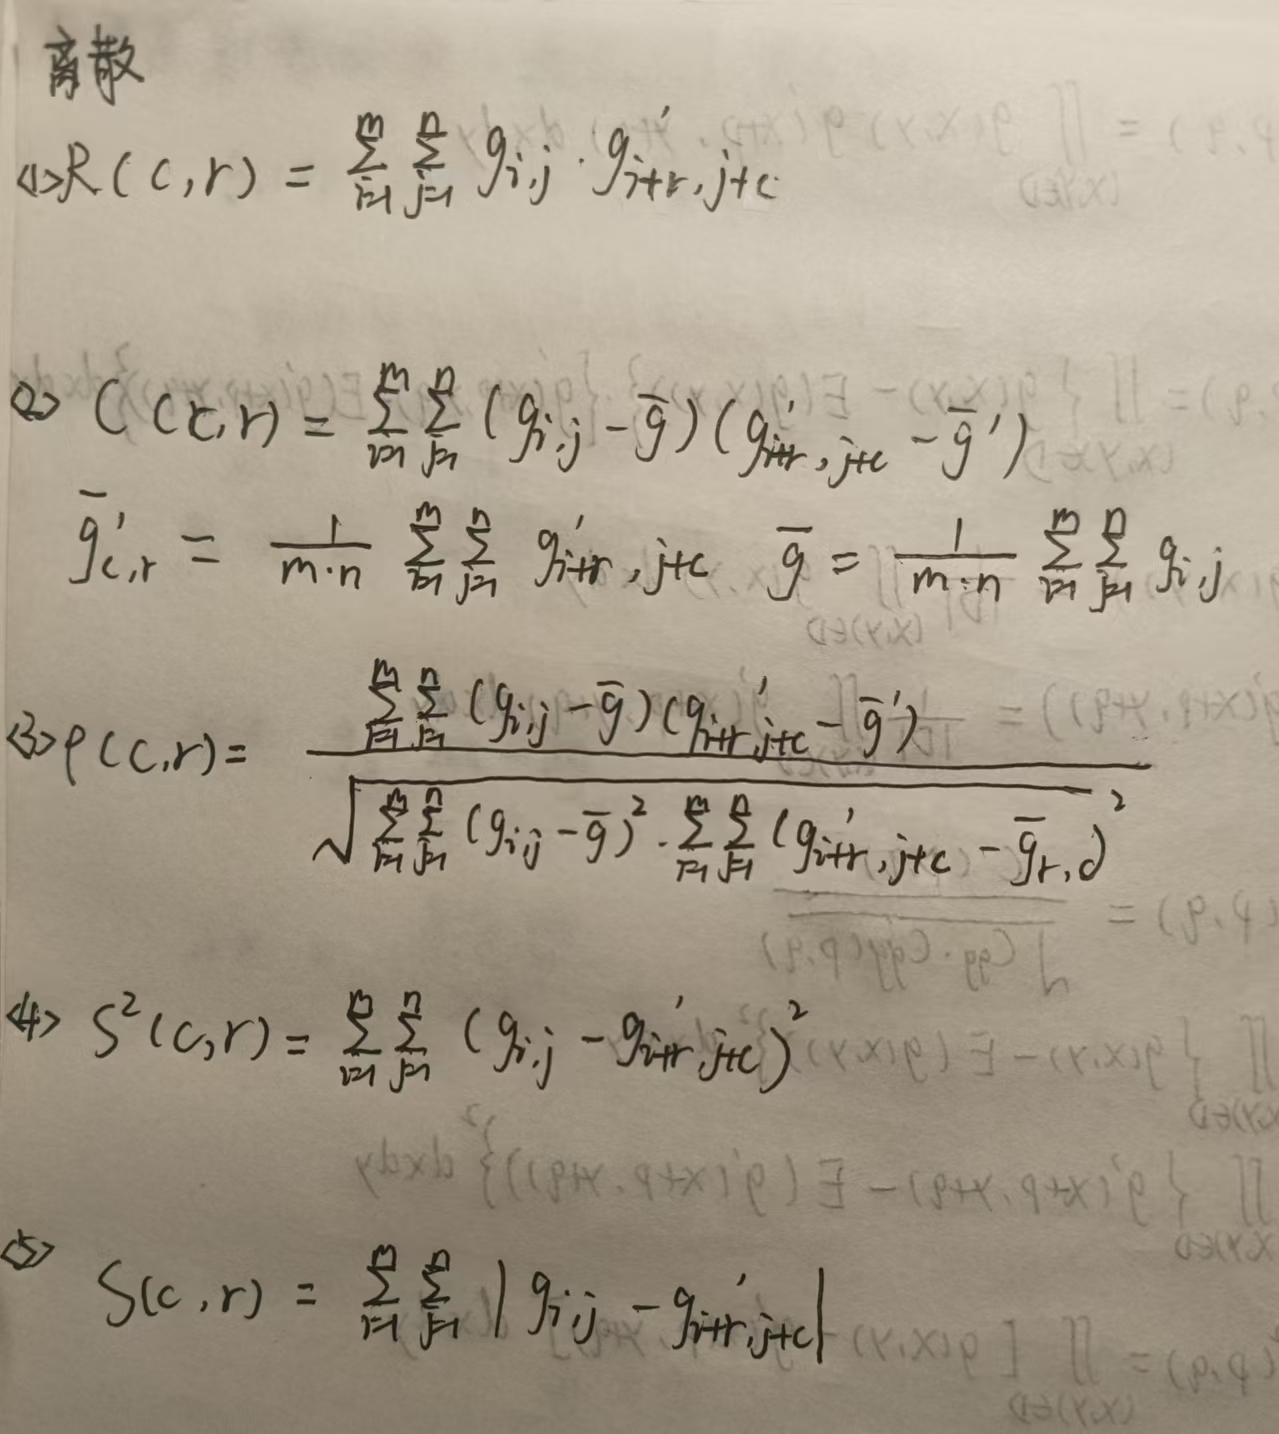 离散
<1> R(c,r) = ∑_{i=1}^{m} ∑_{j=1}^{n} g_{i,j} · g'_{i+r,j+c}
<2> C(c,r) = ∑_{i=1}^{m} ∑_{j=1}^{n} (g_{i,j} - ḡ)(g'_{i+r,j+c} - ḡ')
ḡ'_{c,r} = \frac{1}{m·n} ∑_{i=1}^{m} ∑_{j=1}^{n} g'_{i+r,j+c} ḡ = \frac{1}{m·n} ∑_{i=1}^{m} ∑_{j=1}^{n} g_{i,j}
<3> ρ(c,r) = \frac{∑_{i=1}^{m} ∑_{j=1}^{n} (g_{i,j} - ḡ)(g'_{i+r,j+c} - ḡ')}{\sqrt{∑_{i=1}^{m} ∑_{j=1}^{n} (g_{i,j} - ḡ)^2 · ∑_{i=1}^{m} ∑_{j=1}^{n} (g'_{i+r,j+c} - ḡ_{r,c})^2}}
<4> S^2(c,r) = ∑_{i=1}^{m} ∑_{j=1}^{n} (g_{i,j} - g'_{i+r,j+c})^2
<5> S(c,r) = ∑_{i=1}^{m} ∑_{j=1}^{n} |g_{i,j} - g'_{i+r,j+c}|